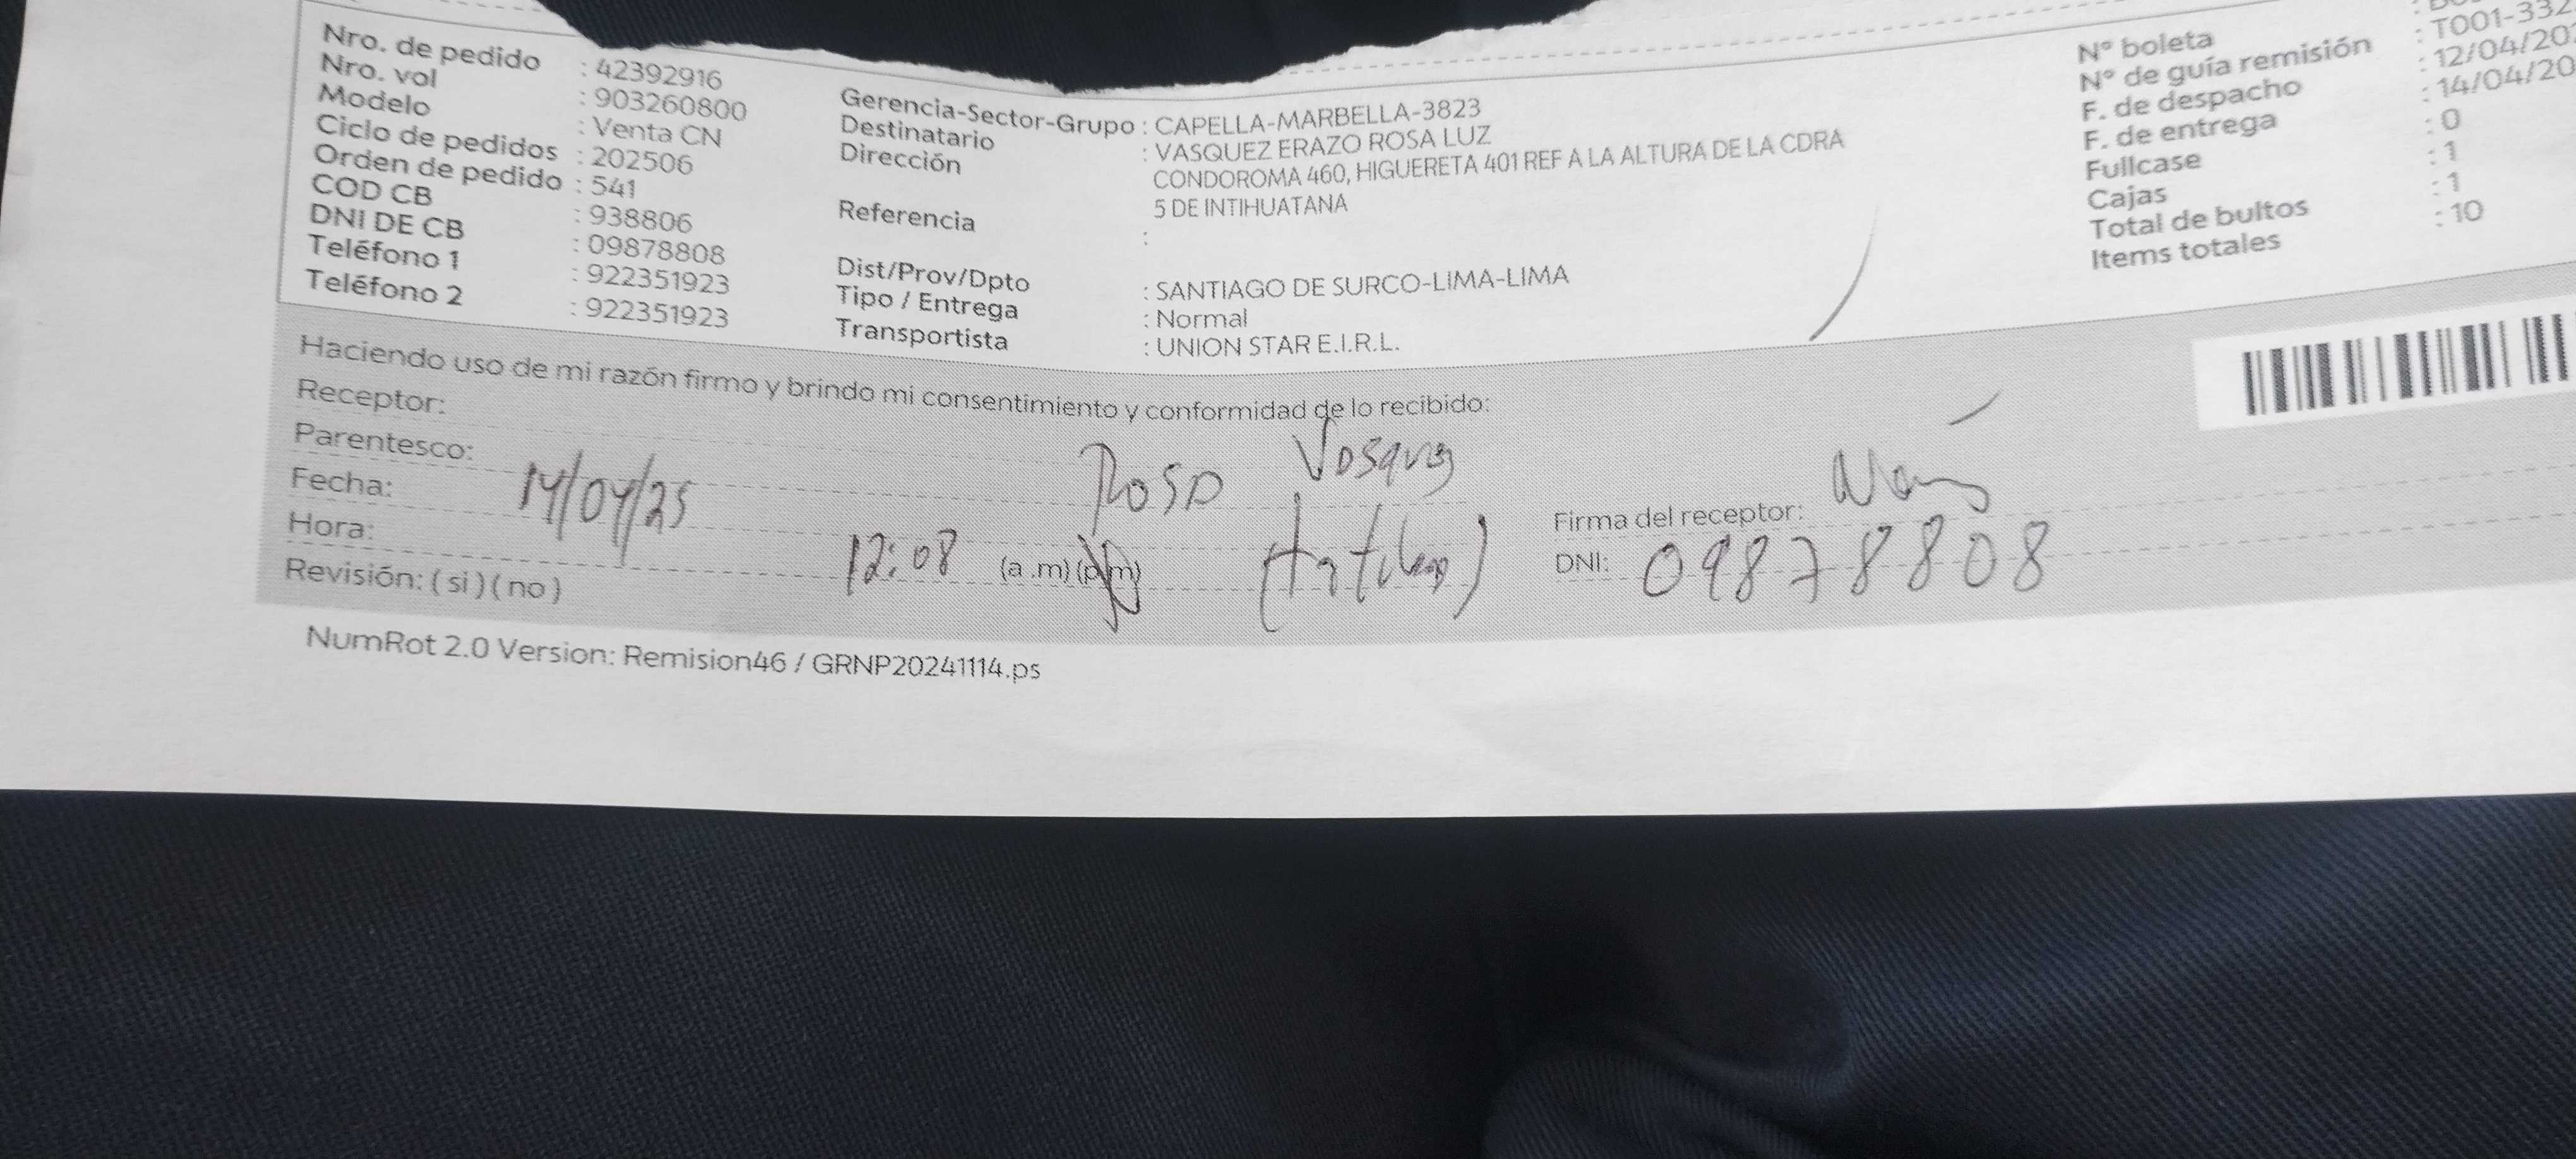 Nro. de pedido : 42392916
Nro. vol : 903260800
Modelo : Venta CN
Ciclo de pedidos : 202506
Orden de pedido : 541
COD CB : 938806
DNI DE CB : 09878808
Teléfono 1 : 922351923
Teléfono 2 : 922351923
Gerencia-Sector-Grupo : CAPELLA-MARBELLA-3823
Destinatario : VASQUEZ ERAZO ROSA LUZ
Dirección : CONDOROMA 460, HIGUERETA 401 REF A LA ALTURA DE LA CDRA
5 DE INTIHUATANA
Referencia :
Dist/Prov/Dpto : SANTIAGO DE SURCO-LIMA-LIMA
Tipo / Entrega : Normal
Transportista : UNION STAR E.I.R.L.
N° boleta
N° de guía remisión : T001-332
F. de despacho : 12/04/20
F. de entrega : 14/04/20
Fullcase : 0
Cajas : 1
Total de bultos : 1
Items totales : 10
Haciendo uso de mi razón firmo y brindo mi consentimiento y conformidad de lo recibido:
Receptor: Rosa Vasquez
Parentesco: (titular)
Fecha: 14/04/25
Hora: 12:08 (a .m) (p.m)
Revisión: ( si ) ( no )
Firma del receptor:
DNI: 09878808
NumRot 2.0 Version: Remision46 / GRNP20241114.ps